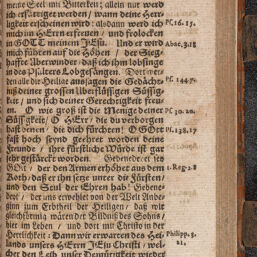 meine Seel mit Bitterkeit; allein nur werd
ich ersättiget werden/ wann deine Herr-
ligkeit erscheinen wird: alsdann werd ich Ps. 16. 15.
mich im HErrn erfreuen / und frolocken
in GOTT meinem JEsu. Und er wird Abac. 3. 18
mich führen auf die Höhen / der Sieg-
haffte Uberwinder / daß ich ihm lobsinge
in des Psalters Lobgesängen. Dort wer-
den alle die Heilige aussagen die Gedächt-
nuß deiner grossen Uberflüssigen Süssig- Ps. 144. 7.
keit / und sich deiner Gerechtigkeit freu-
en. O wie groß ist die Menige deiner Ps. 30. 20.
Süssigkeit / O HErr / die du verborgen
hast denen / die dich förchten! O GOtt Ps. 138. 17
fast hoch seynd geehret worden deine
Freunde / ihre fürstliche Würde ist gar
sehr gestärckt worden. Gebenedeyet sey
GOtt / der den Armen erhöhet aus dem 1. Reg. 2. 8
Koth / daß er ihn setze unter die Fürsten /
und den Stul der Ehren hab! Gebene-
deyet / der uns erwehlet von der Welt Anbe-
ginn zum Erbtheil der Heiligen / daß wir
gleichförmig wären der Bildnuß des Sohns /
hier im Leben / und dort mit Christo in der
Herrlichkeit: Dann wir erwarten des Hei- Philipp. 3.
lands unsers HErrn JEsu Christi / wel- 21.
cher den Leib unser Demütigkeit wieder